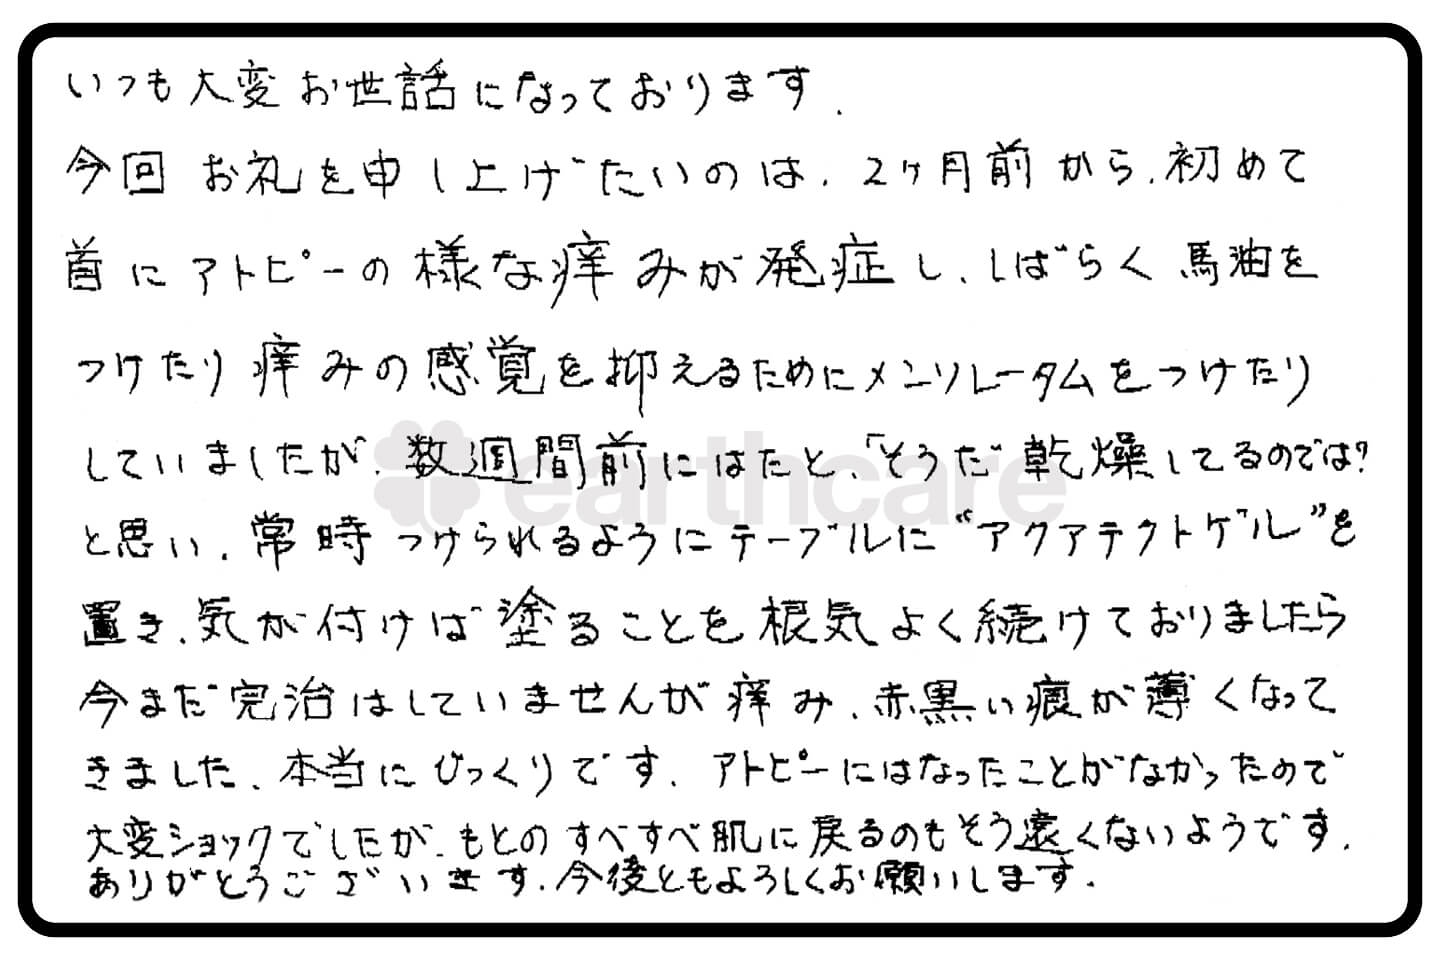 いつも大変お世話になっております.
今回 お礼を申し上げたいのは、2ヶ月前から、初めて
首にアトピーの様な痒みが発症し、しばらく馬油を
つけたり痒みの感覚を抑えるためにメンソレータムをつけたり
していましたが、数週間前にはたと、「そうだ乾燥してるのでは?
と思い、常時つけられるようにテーブルに“アクアテクトゲル”を
置き、気が付けば塗ることを根気よく続けておりましたら
今まだ完治はしていませんが痒み、赤黒い痕が薄くなって
きました、本当にびっくりです. アトピーにはなったことがなかったので
大変ショックでしたが、もとのすべすべ肌に戻るのもそう遠くないようです.
ありがとうございます.今後ともよろしくお願いします.
earthcare